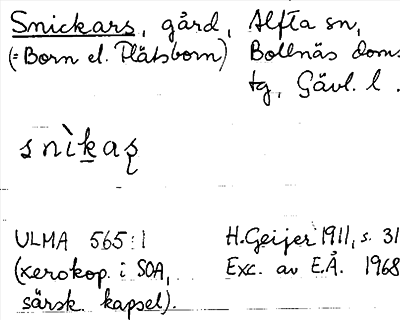 Snickars, gård, Alfta sn,
(= Born el. Plätsborn) Bollnäs doms.
tg, Gävl. l.
snìkaș
ULMA 565:1 H. Geijer 1911, s. 31
(xerokop. i SOA, Exc. av E.Å. 1968
särsk. kapsel).